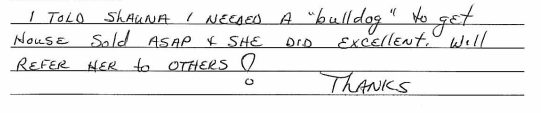 I TOLD SHAUNA I NEEDED A "bulldog" to get
House Sold ASAP & SHE DID EXCELLENT. Will
REFER HER to OTHERS!
THANKS